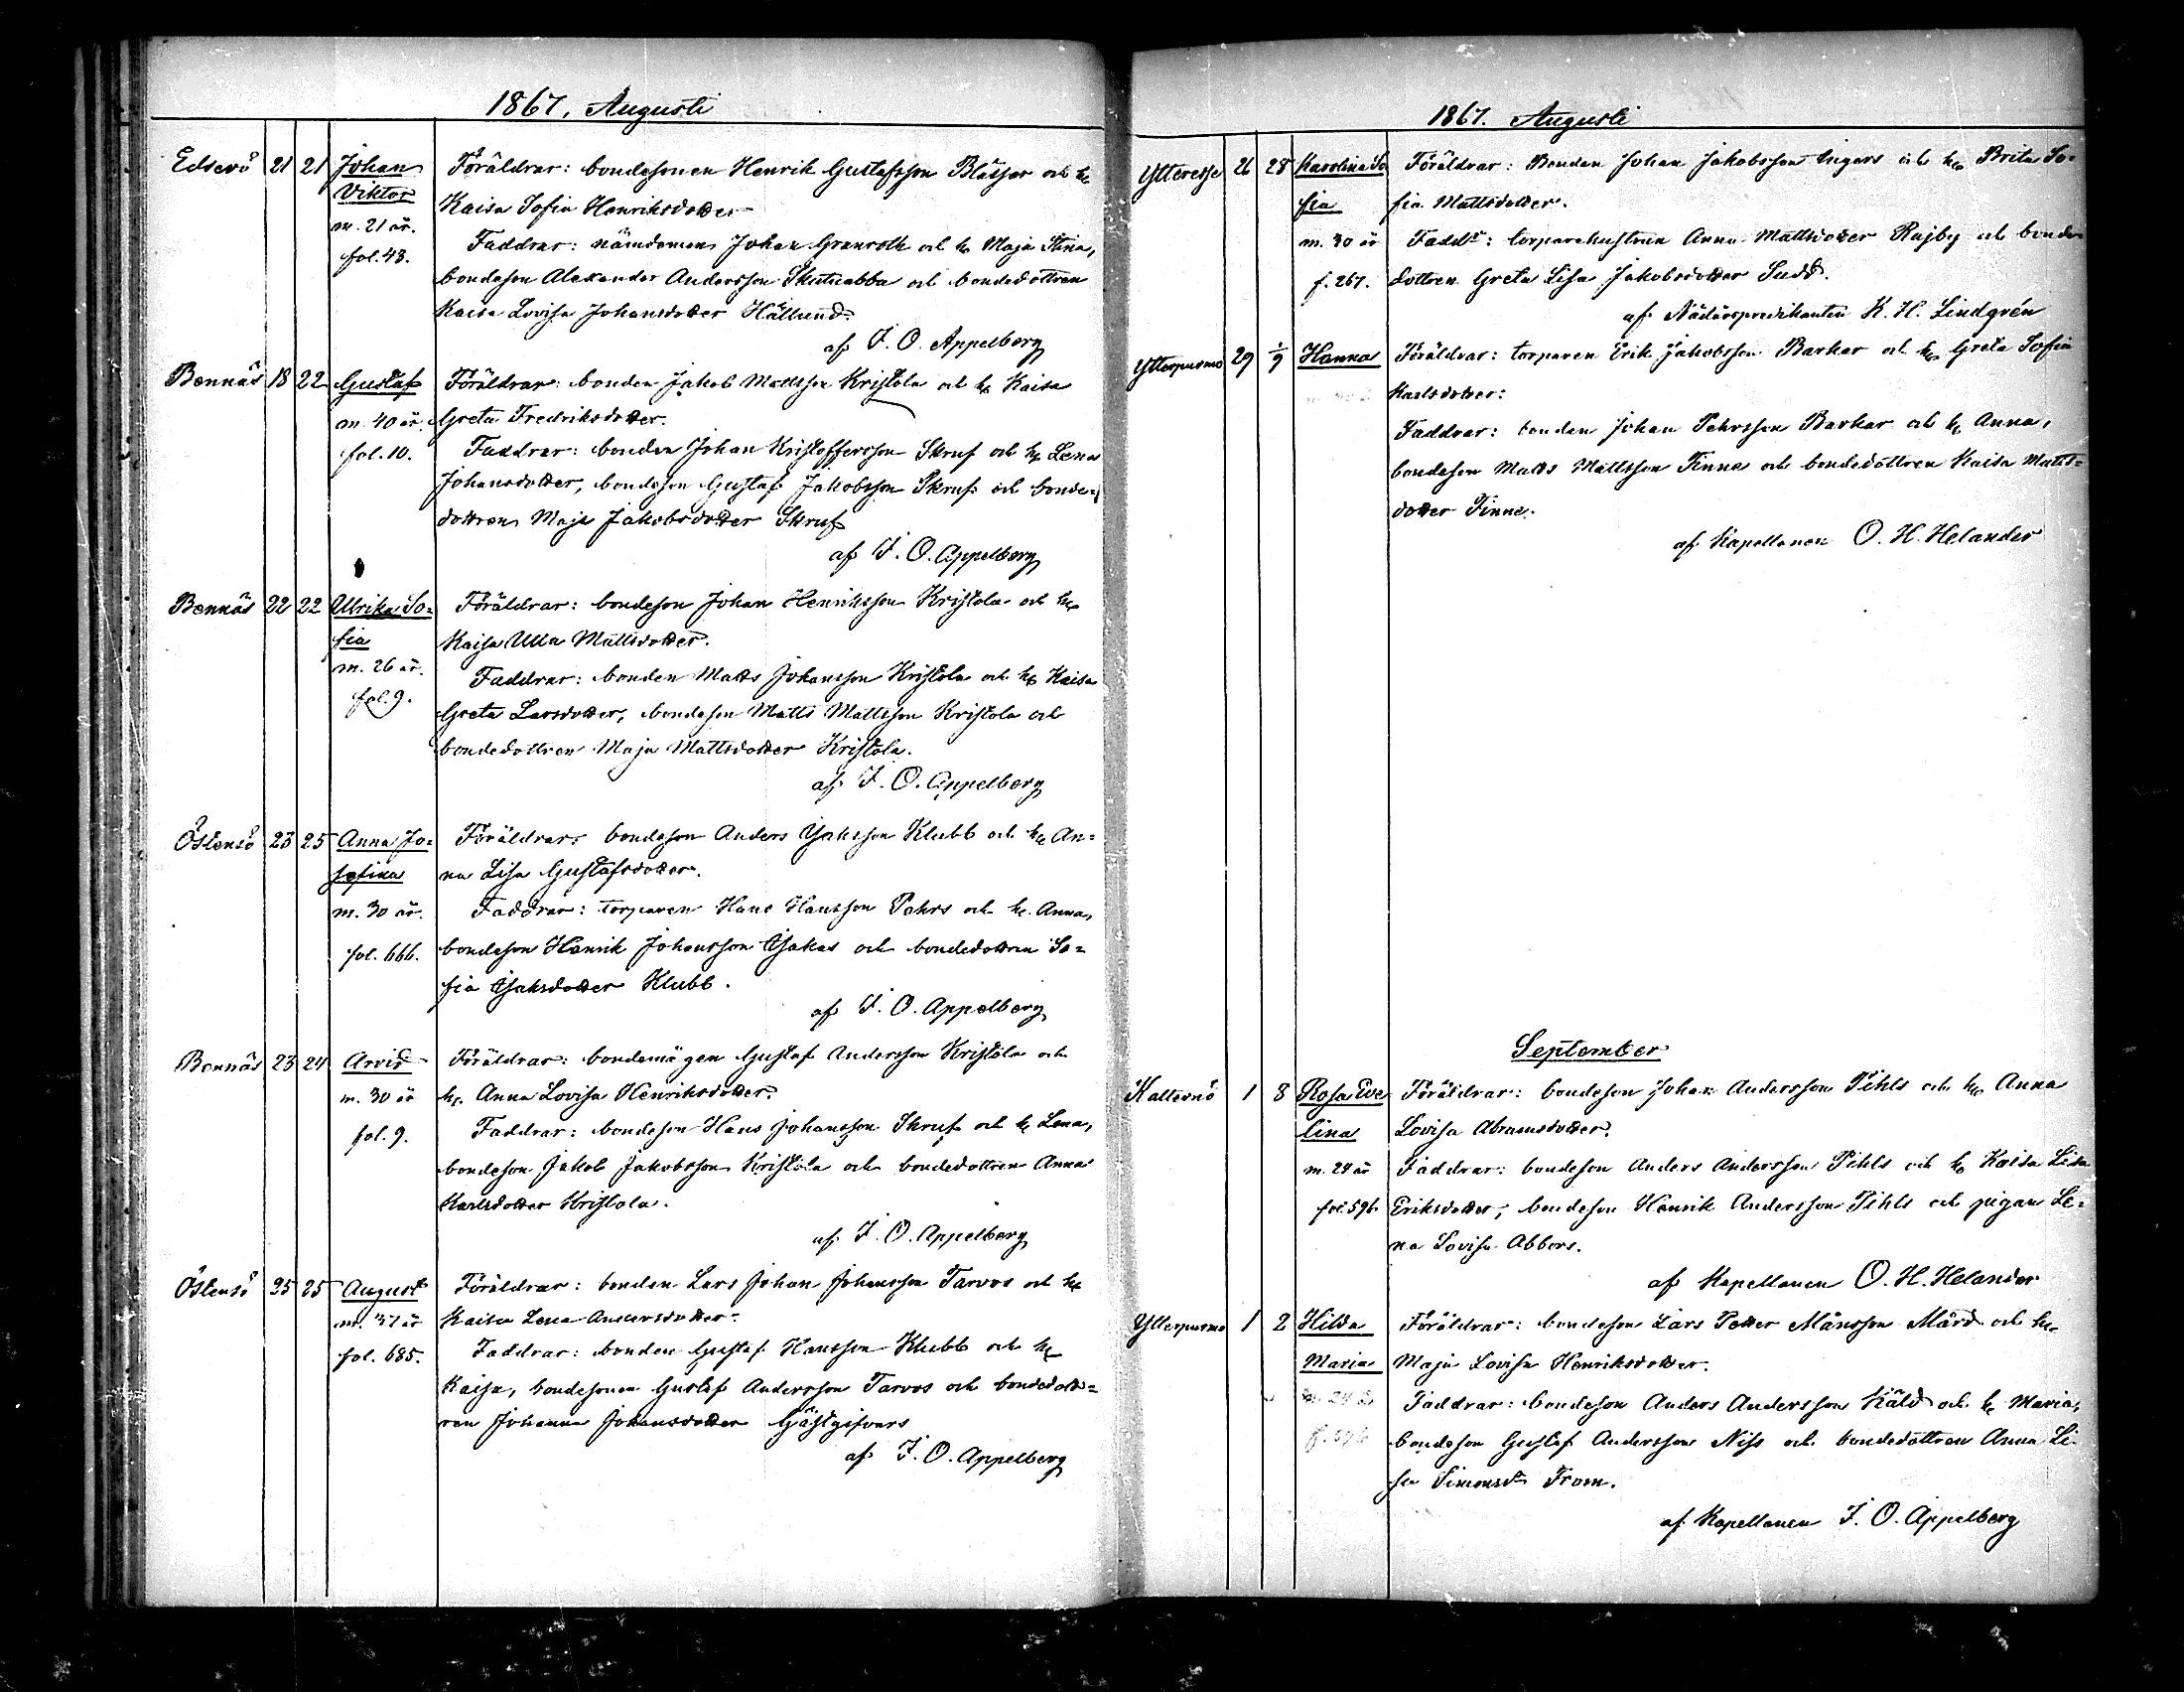 1867. Augusti
Edsevö 21 21 Johan Föräldrar: bondesonen Henrik Gustafsson Bläsjar och h.
Viktor Kaisa Sofia Henriksdotter
m. 21 år.
Faddrar: nämndemann Johan Granroth och h. Maja Stina,
fol. 43.
bondeson Alexander Andersson Skutnabba och bondedottren
Kaisa Lovisa Johansdotter Hällund.
af I. O. Appelberg
Bennäs 18 22 Gustaf Föräldrar: bonden Jakob Mattsson Kristola och h. Kaisa
m. 40 år. Greta Fredriksdotter.
fol. 10. Faddrar: bonden Johan Kristoffersson Skruf och h. Lena
Johansdotter, bondeson Gustaf Jakobsson Skruf och bonde-
dottren Maja Jakobsdotter Skruf
af I. O. Appelberg
Bennäs 22 22 Ulrika So= Föräldrar: bondeson Johan Henriksson Kristola och h.
fia Kaisa Ulla Mattsdotter.
m. 26 år.
Faddrar: bonden Matts Johansson Kristola och h. Kaisa
fol. 9.
Greta Larsdotter, bondeson Matts Mattsson Kristola och
bondedottren Maja Mattsdotter Kristola.
af I. O. Appelberg
Östensö 23 25 Anna Jo= Föräldrar: bondeson Anders Isaksson Klubb och h. An=
sefina na Lisa Gustafsdotter.
m. 30 år. Faddrar: torparen Hans Hansson Pehrs och h. Anna,
fol. 666. bondeson Henrik Johansson Isakas och bondedottren So=
fia Isaksdotter Klubb.
af I. O. Appelberg
Bennäs 23 24 Arvid Föräldrar: bondemågen Gustaf Andersson Kristola och
m. 30 år h. Anna Lovisa Henriksdotter.
fol. 9. Faddrar: bondeson Hans Johansson Skruf och h. Lena,
bondeson Jakob Jakobsson Kristola och bondedottren Anna
Karlsdotter Kristola.
af I. O. Appelberg
Östensö 25 25 August Föräldrar: bonden Lars Johan Johansson Tarvos och h.
m. 37 år Kaisa Lena Andersdotter.
fol. 685. Faddrar: bonden Gustaf Hansson Klubb och h.
Kaisa, bondesonen Gustaf Andersson Tarvos och bondedott=
ren Johanna Johansdotter Gästgifvars
af I. O. Appelberg
1867. Augusti
Ytteresse 26 28 Karolina So Föräldrar: Bonden Johan Jakobsson Ingers och h. Brita So-
fia fia Mattsdotter.
m. 30 år Fadd:r: torparehustrun Anna Mattsdotter Rajby och bonde-
f. 267. dottren Greta Lisa Jakobsdotter Sudd.
af Nådårspredikanten K. H. Lindgrén
Ytterpurmo 29 1/9 Hanna Föräldrar: torparen Erik Jakobsson Barkar och h. Greta Sofia
Karlsdotter:
Faddrar: bonden Johan Pehrsson Barkar och h. Anna,
bondeson Matts Mattsson Finne och bondedottren Kaisa Matts=
dotter Finne.
af Kapellanen O. H. Helander
September
Kållernö 1 3 Rosa Eve Föräldrar: bondeson Johan Andersson Pihls och h. Anna
lina Lovisa Abramsdotter.
m. 24 år Faddrar: bondeson Anders Andersson Pihls och h. Kaisa Lisa
fol. 596 Eriksdotter, bondeson Henrik Andersson Pihls och pigan Le=
na Lovisa Abbors.
af Kapellanen O. H. Helander
Ytterpurmo 1 2 Hilda Föräldrar: bondeson Lars Petter Månsson Mård och h.
Maria Maja Lovisa Henriksdotter.
m. 24 år Faddrar: bondeson Anders Andersson Käld och h. Maria,
bondeson Gustaf Andersson Niss och bondedottren Anna Li-
sa Simonsd:r From.
af Kapellanen I. O. Appelberg